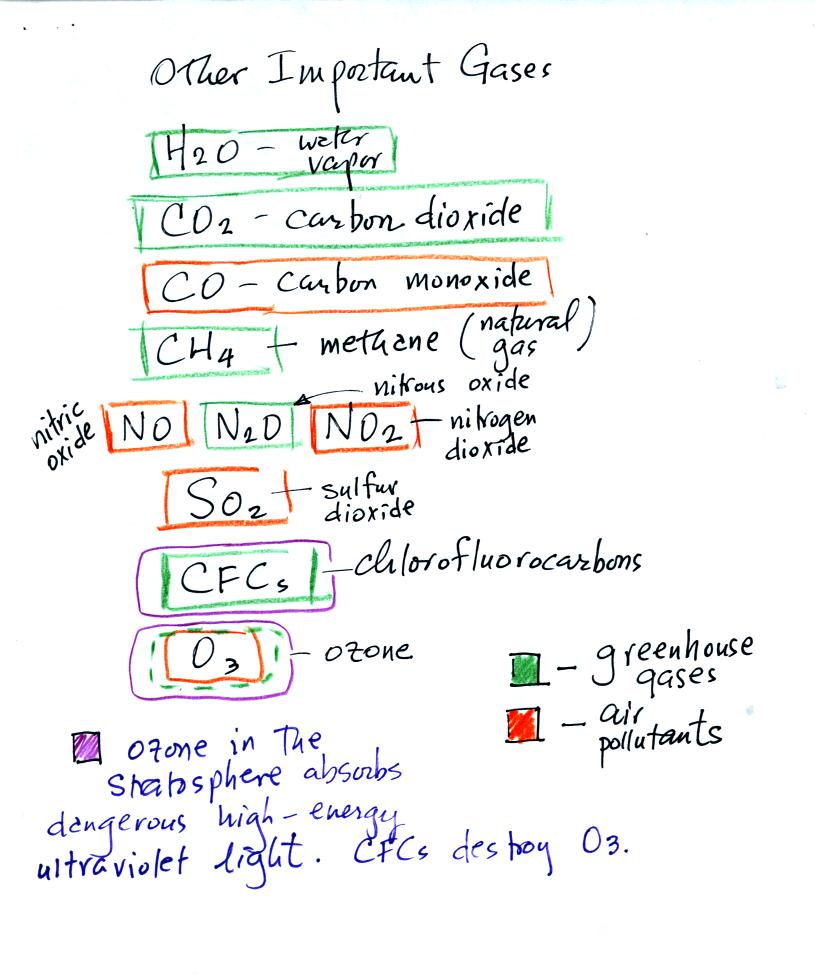 Other Important Gases
H2O - water vapor
CO2 - carbon dioxide
CO - carbon monoxide
CH4 - methane (natural gas)
nitrous oxide
nitric oxide NO N2O NO2 - nitrogen dioxide
SO2 - sulfur dioxide
CFCs - chlorofluorocarbons
O3 - ozone
- greenhouse gases
- air pollutants
ozone in the
stratosphere absorbs
dangerous high-energy
ultraviolet light. CFCs destroy O3.